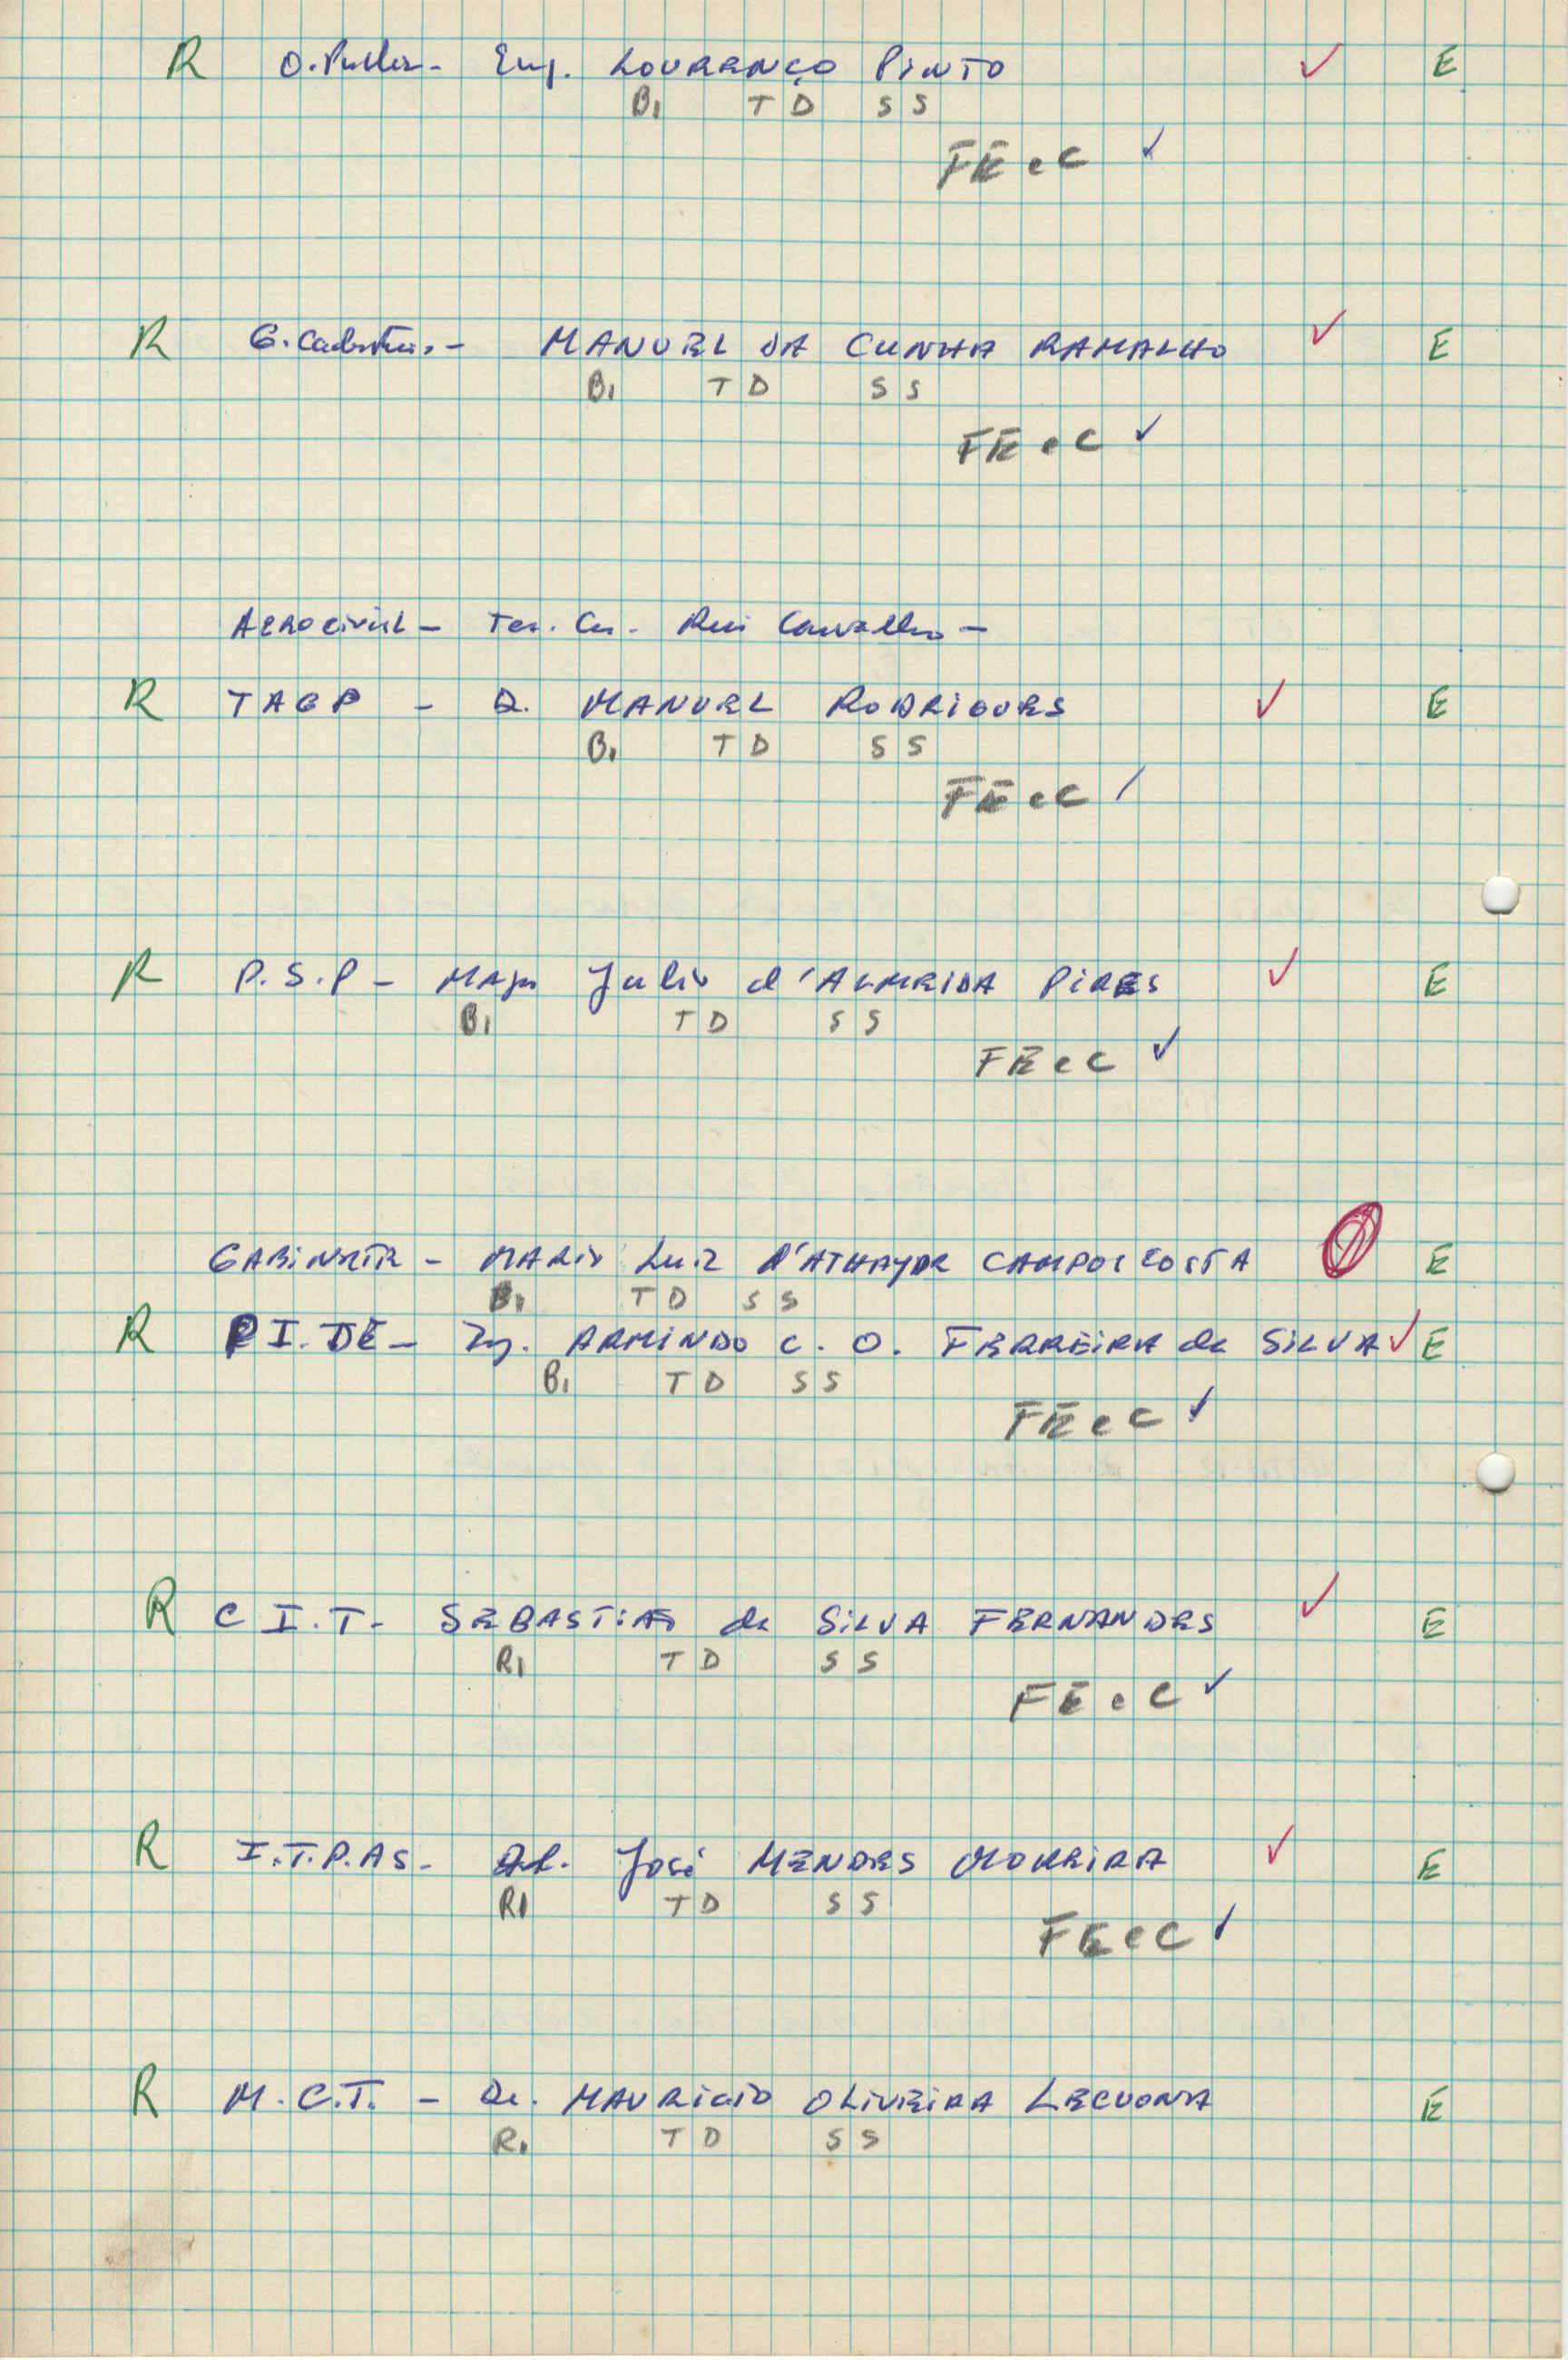 R O. Publi- Eng. LOURENÇO PINTO ✓ E
B1 T D S S
FE e C ✓
R G. Cadastrais - MANUEL DA CUNHA RAMALHO ✓ E
B1 T D S S
FE e C ✓
AEROCIVIL - Ten. Cor. Rui Carvalho -
R TAGP - D. MANUEL RODRIGUES ✓ E
B1 T D S S
FE e C /
R P.S.P - Major Julio d'ALMEIDA PIRES ✓ E
B1 T D S S
FE e C ✓
GABINETE - MARIO LUIZ D'ATHAYDE CAMPOS COSTA E
B1 T D S S
R P I. DE - ARMINDO C. O. FERREIRA da SILVA ✓ E
B1 T D S S
FE e C ✓
R C I.T- SEBASTIÃO da SILVA FERNANDES ✓ E
R1 T D S S
FE e C ✓
R I.T.P.AS- JOSÉ MENDES MOREIRA ✓ E
R1 T D S S
FE e C ✓
R M.C.T. - Dr. MAURICIO OLIVEIRA LECUONA E
R1 T D S S